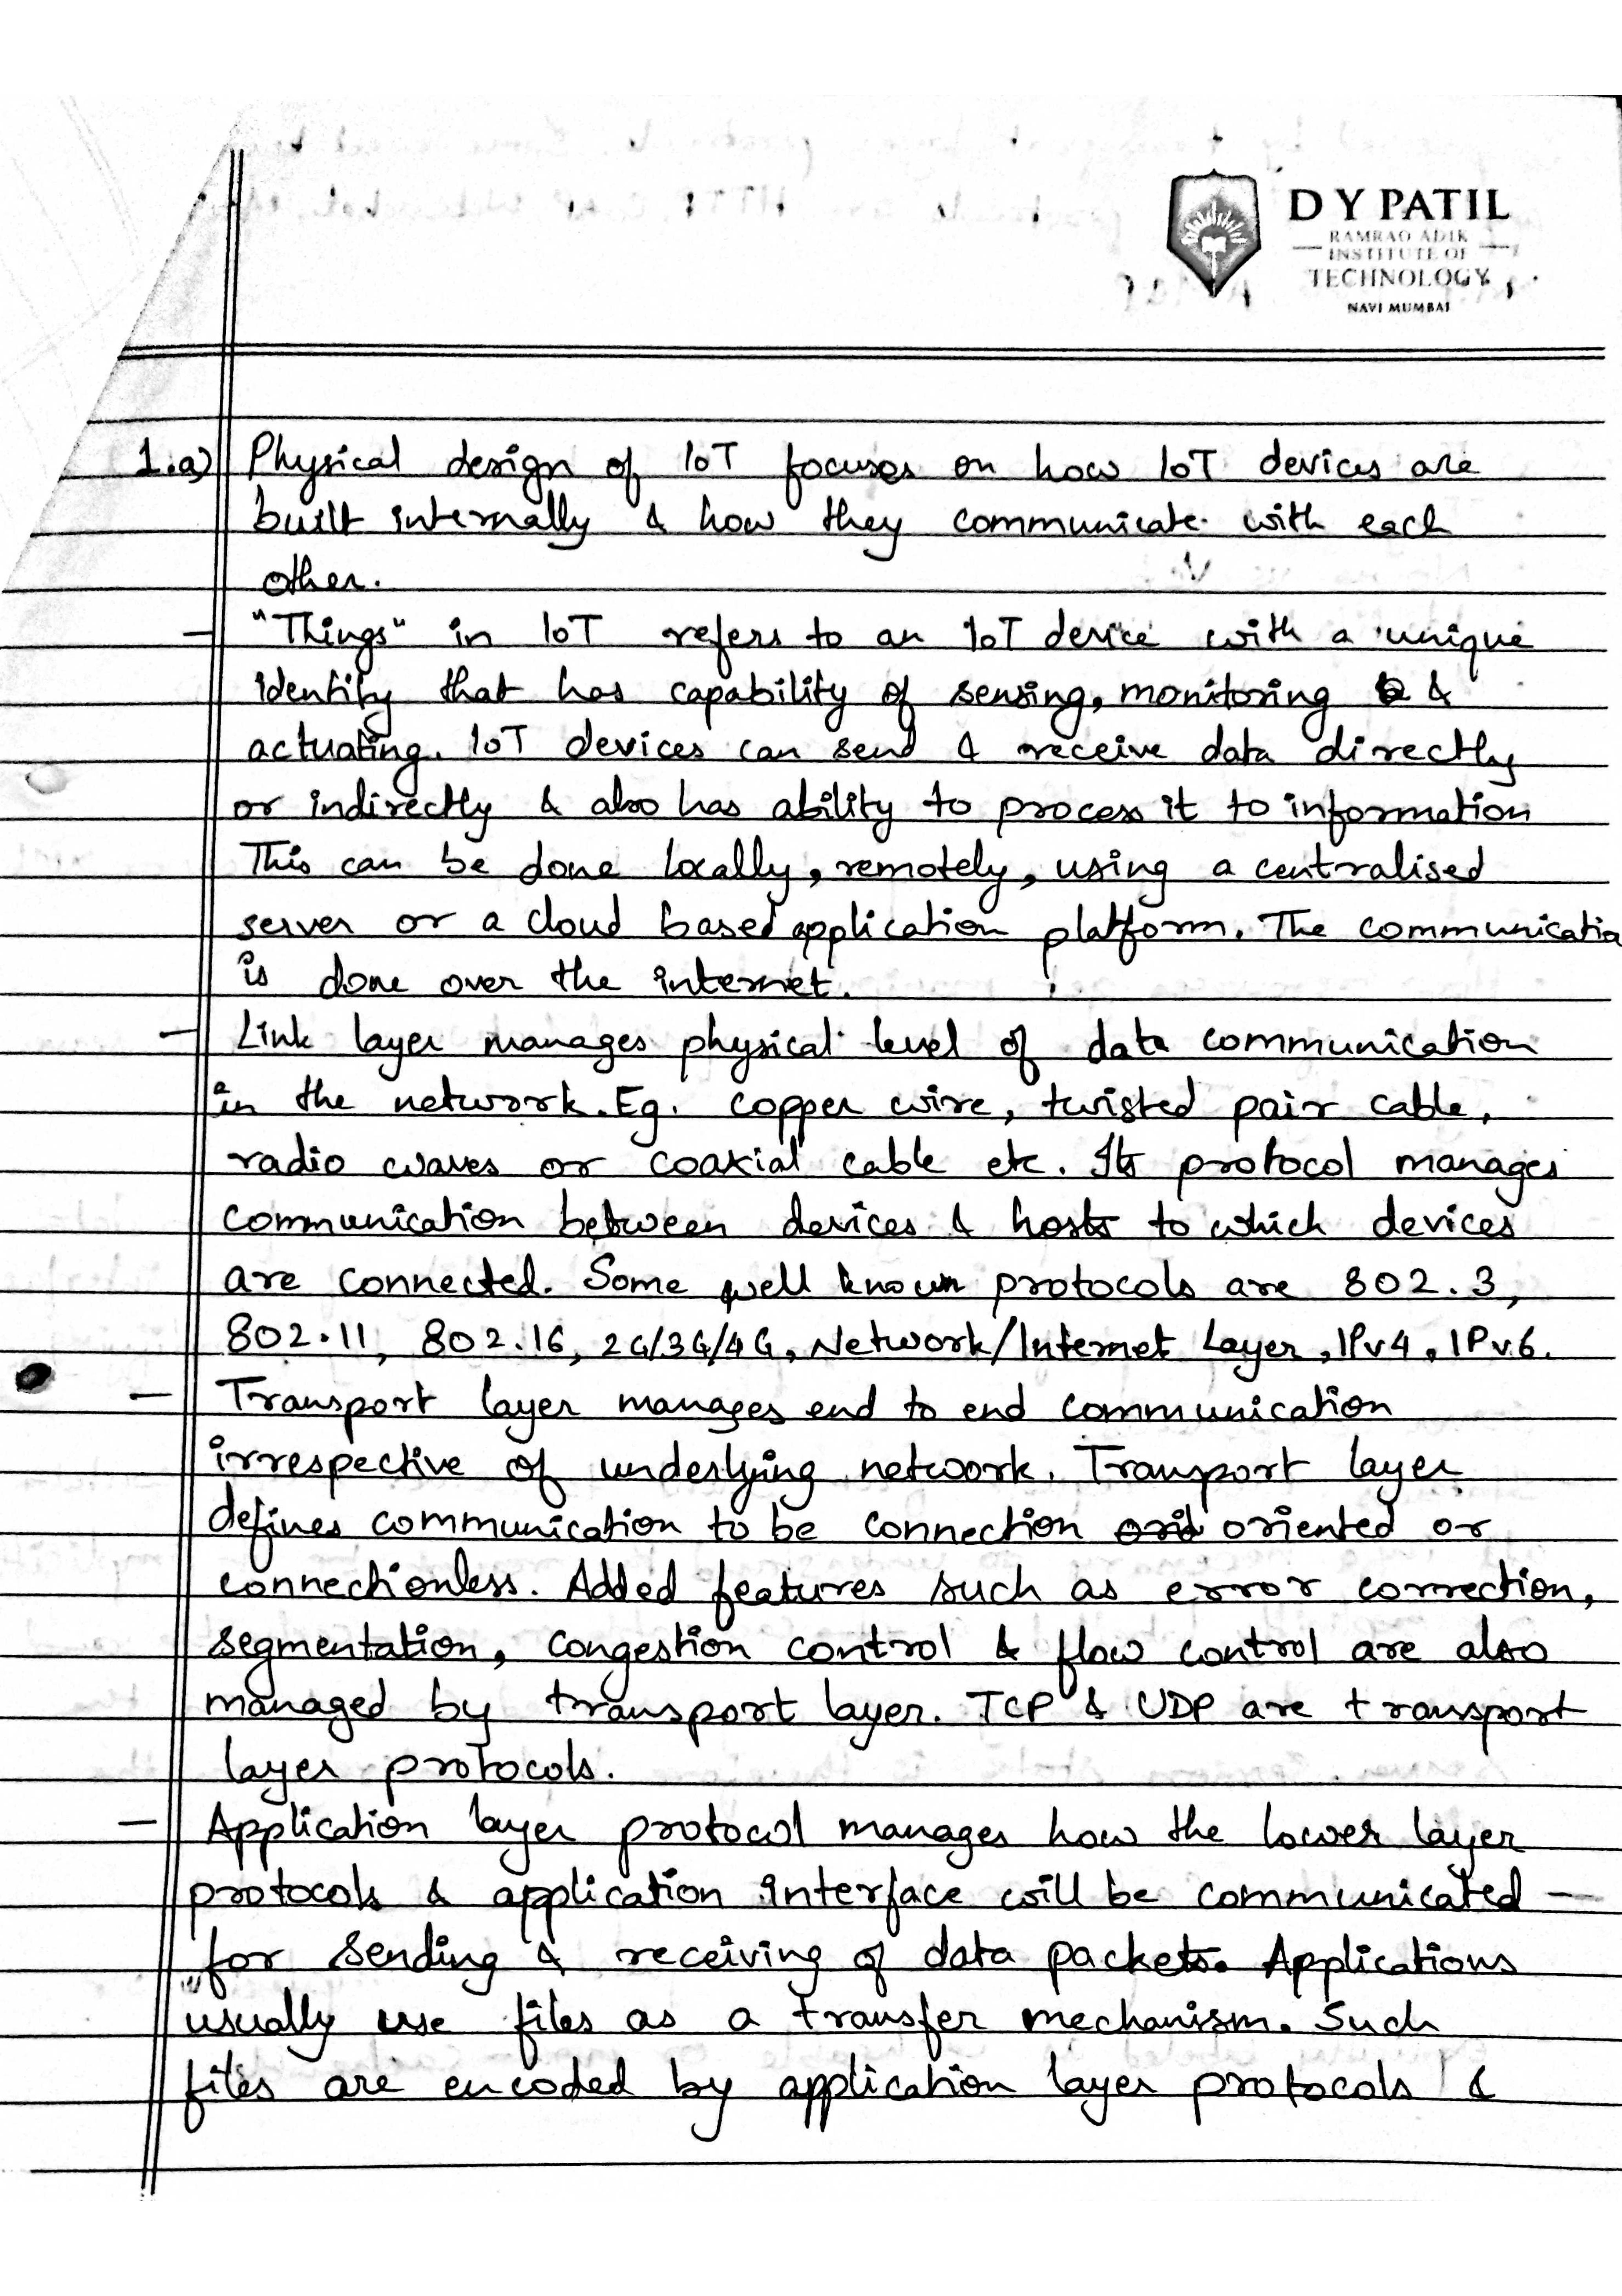 D Y PATIL
RAMRAO ADIK
INSTITUTE OF
TECHNOLOGY
NAVI MUMBAI
1.a) Physical design of IoT focuses on how IoT devices are
built internally & how they communicate with each
other.
- "Things" in IoT refers to an IoT device with a unique
identity that has capability of sensing, monitoring &
actuating. IoT devices can send & receive data directly
or indirectly & also has ability to process it to information
This can be done locally, remotely, using a centralised
server or a cloud based application platform. The communicatio
is done over the internet.
- Link layer manages physical level of data communication
in the network. Eg. copper wire, twisted pair cable,
radio waves or coaxial cable etc. Its protocol manages
communication between devices & hosts to which devices
are connected. Some well known protocols are 802.3,
802.11, 802.16, 2G/3G/4G, Network/Internet Layer, IPv4, IPv6.
- Transport layer manages end to end communication
irrespective of underlying network. Transport layer
defines communication to be connection oriented or
connectionless. Added features such as error correction,
segmentation, congestion control & flow control are also
managed by transport layer. TCP & UDP are transport
layer protocols.
- Application layer protocol manages how the lower layer
protocols & application interface will be communicated -
for sending & receiving of data packets. Applications
usually use files as a transfer mechanism. Such
files are encoded by application layer protocols &